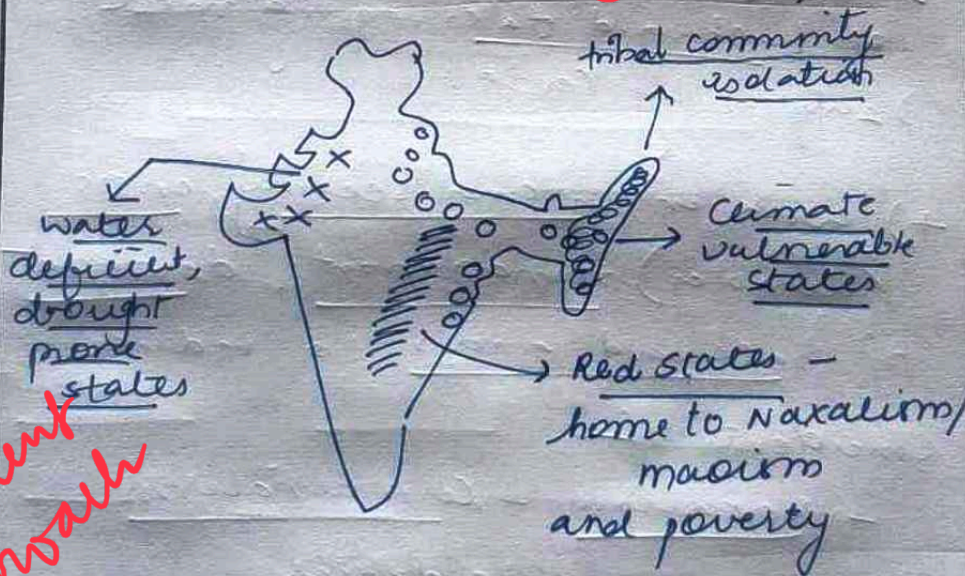 tribal community
isolation
water
deficient,
drought
prone
states
Climate
vulnerable
states
Red states –
home to Naxalism/
maoism
and poverty